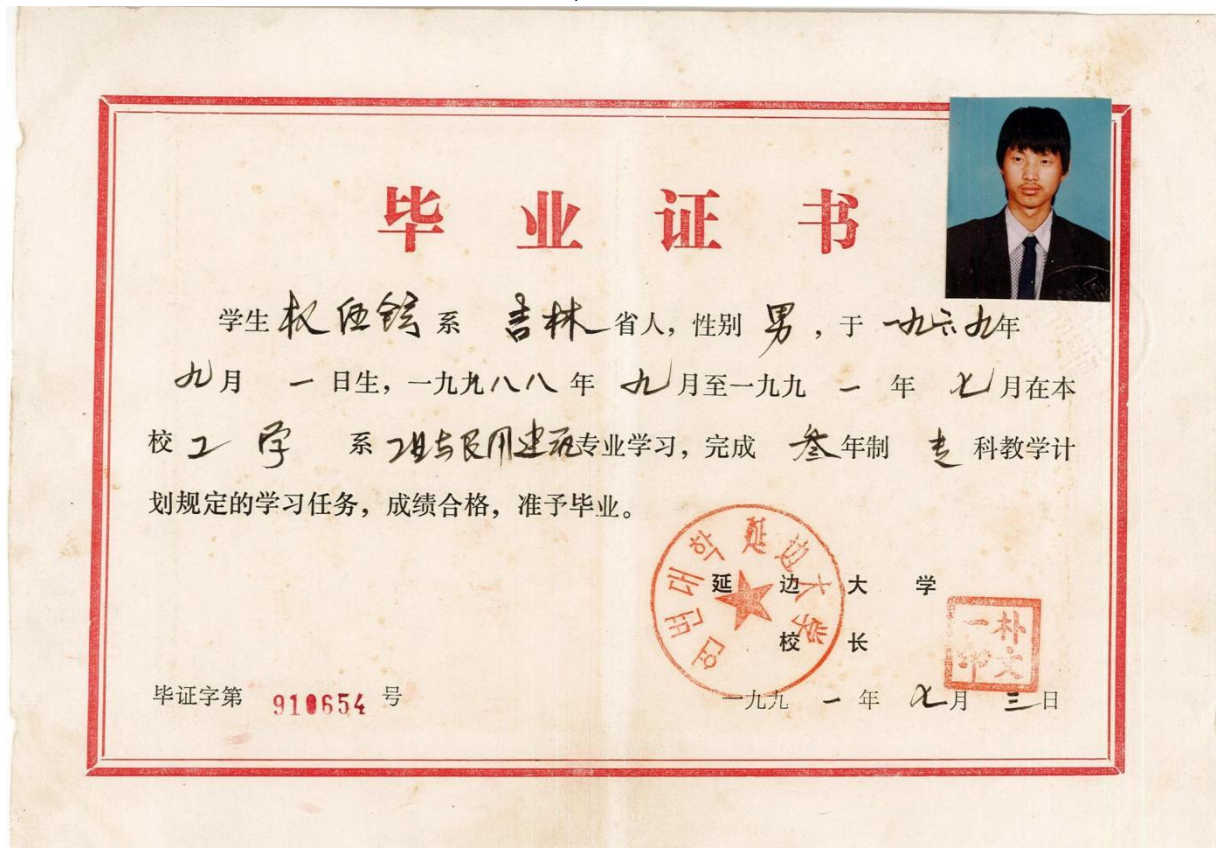 毕业证书
学生 权 系 吉林 省人，性别 男 ，于 一九六九年
九月 一 日生，一九八八 年 九月至一九九 一 年 七月在本
校 工学 系 工业与民用建筑专业学习，完成 叁年制 专 科教学计
划规定的学习任务，成绩合格，准予毕业。
연변대학 延边大学
延边大学
校长
朴文一印
毕证字第 910654 号
一九九 一 年 七月 三日